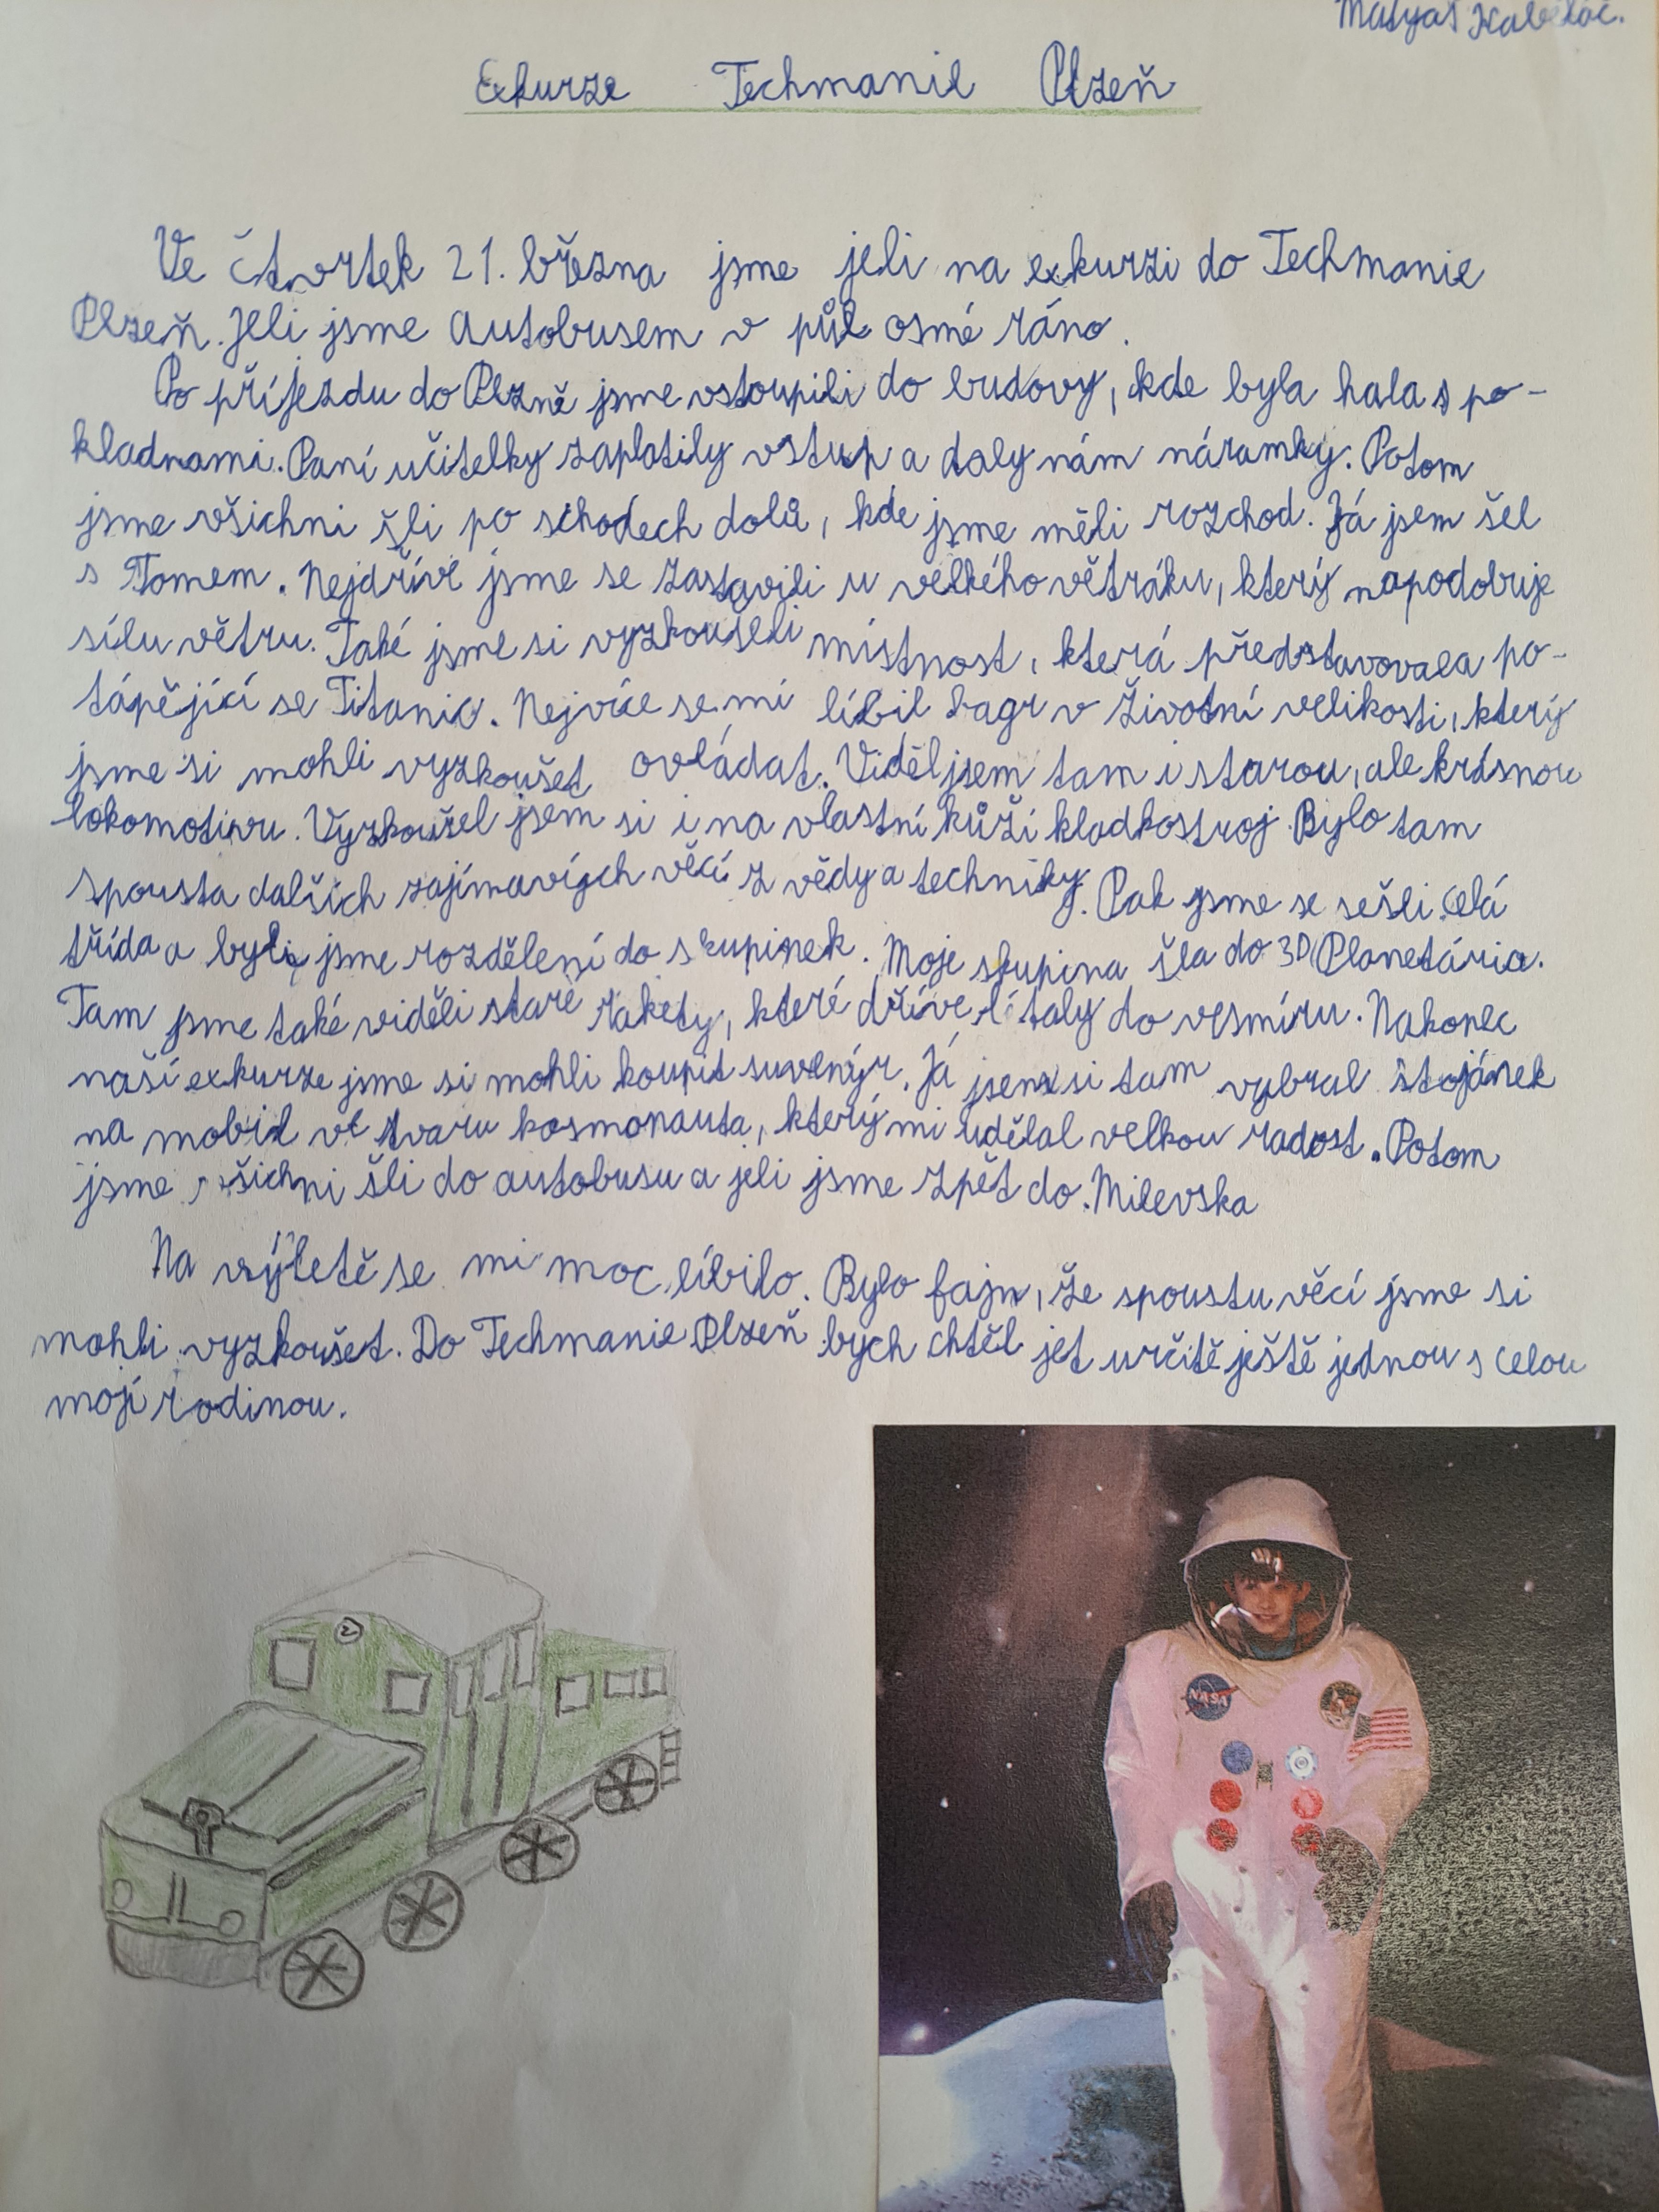 Matyáš
Exkurze Techmanie Plzeň
Ve čtvrtek 21. března jsme jeli na exkurzi do Techmanie
Plzeň. Jeli jsme autobusem v půl osmé ráno.
Po příjezdu do Plzně jsme vstoupili do budovy, kde byla hala s po-
kladnami. Paní učitelky zaplatily vstup a daly nám náramky. Potom
jsme všichni šli po schodech dolů, kde jsme měli rozchod. Já jsem šel
s Tomem. Nejdříve jsme se zastavili u velkého větráku, který napodobuje
sílu větru. Také jsme si vyzkoušeli místnost, která představovala po-
tápějící se Titanic. Nejvíce se mi líbil bagr v životní velikosti, který
jsme si mohli vyzkoušet ovládat. Viděl jsem tam i starou, ale krásnou
lokomotivu. Vyzkoušel jsem si i na vlastní kůži kladkostroj. Bylo tam
spousta dalších zajímavých věcí z vědy a techniky. Pak jsme se sešli celá
třída a byli jsme rozděleni do skupinek. Moje skupina šla do 3D Planetária.
Tam jsme také viděli staré rakety, které dříve létaly do vesmíru. Nakonec
naší exkurze jsme si mohli koupit suvenýr. Já jsem si tam vybral stojánek
na mobil ve tvaru kosmonauta, který mi udělal velkou radost. Potom
jsme všichni šli do autobusu a jeli jsme zpět do Milevska
Na výletě se mi moc líbilo. Bylo fajn, že spoustu věcí jsme si
mohli vyzkoušet. Do Techmanie Plzeň bych chtěl jet určitě ještě jednou s celou
mojí rodinou.
2
NASA